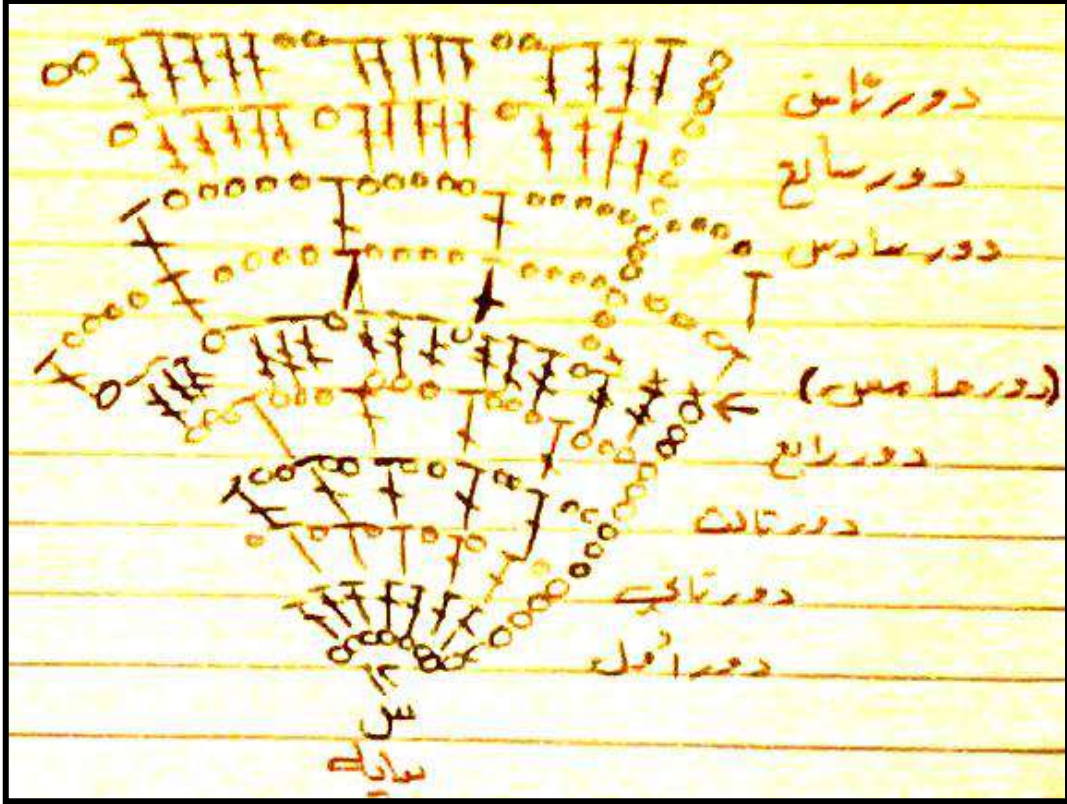 دور تامن
دور سابع
دور سادس
(دور خامس)
دور رابع
دور تالت
دور تاني
دور اول
س
بدايه